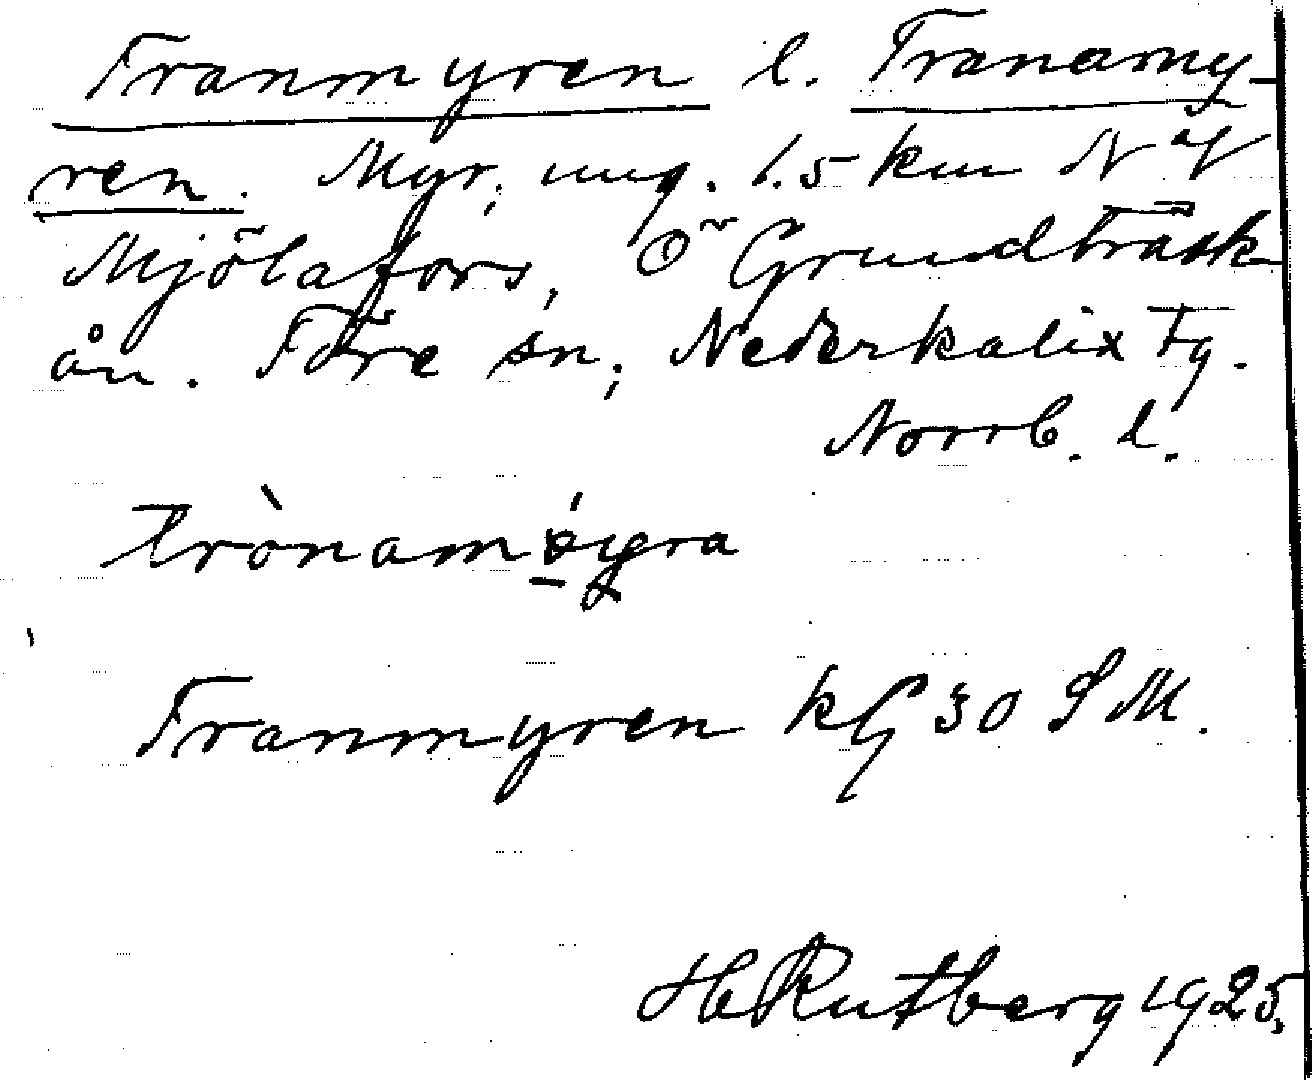 Tranmyren l. Tranamy-
ren. Myr, ung. 1.5 km N af
Mjölafors, Ö Grundträsk-
ån. Töre sn, Nederkalix tg.
Norrb. l.
trònamýra
Tranmyren kG 30 SM.
H Rutberg 1925.